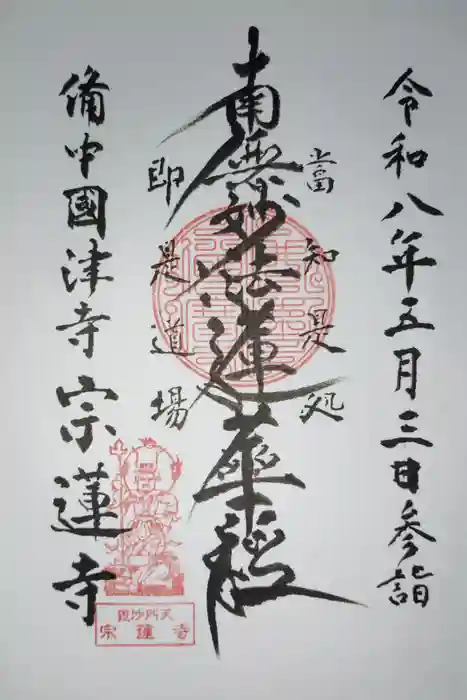 令和八年五月三日参詣
當知是処
南無妙法蓮華経
即是道場
備中國津寺 宗蓮寺
毘沙門天
宗蓮寺